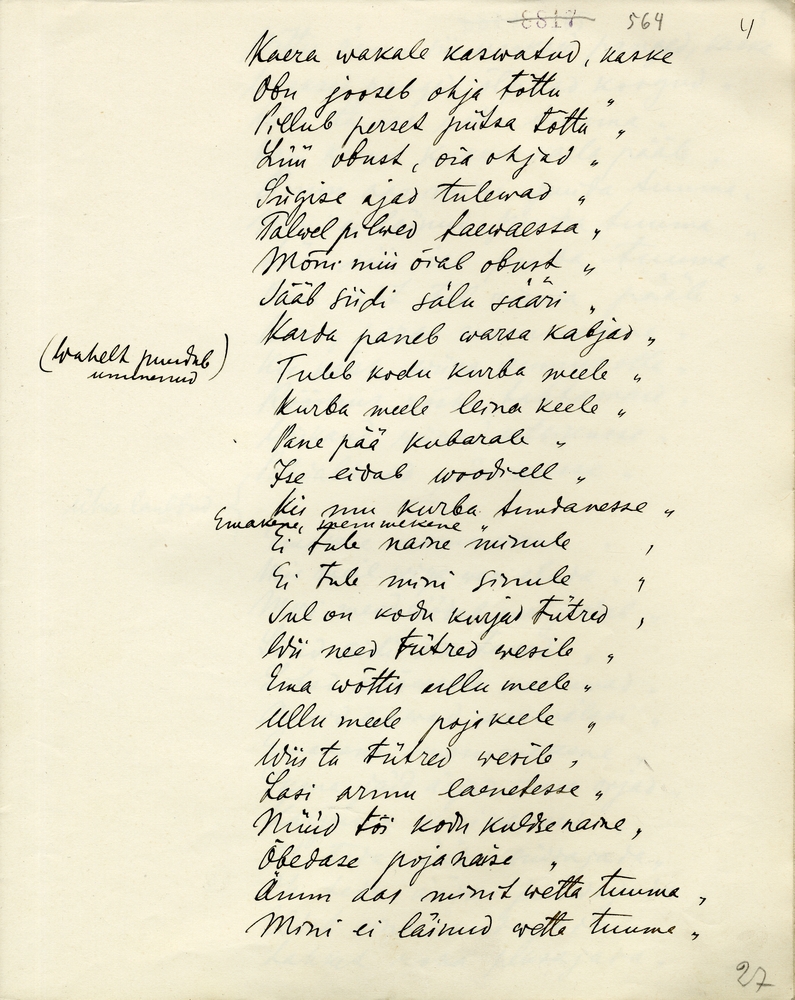 8817 564 4
Kaera wakale kaswatud, kaske
Obu jooseb ohja tõttu "
Pillub perset piitsa tõttu "
Lüü obust, oia ohjad "
Sügise ajad tulewad "
Talwel pilwed taewaessa "
Mõni mii õiab obust "
Jääb siidi sälu sääri "
Karda paneb warsa kabjad "
(Wahelt puudub
ununenud)
Tuleb kodu kurba meele "
Kurba meele leina keele "
Pane pää kubarale "
Ise eidab woodiell "
Kis mu kurba tundanesse "
Emakene, memmekene "
Ei tule naine minule "
Ei tule mini sinule "
Sul on kodu kurjad tütred "
Wii need tütred wesile "
Ema wõttis ullu meele "
Ullu meele poja keele "
Wiis ta tütred wesile "
Lasi armu laenetesse "
Nüüd tõi kodu kuldse naine "
Õbedase pojanaise "
Ämm aas minit wetta tuuma "
Mini ei läinud wetta tuuma "
27